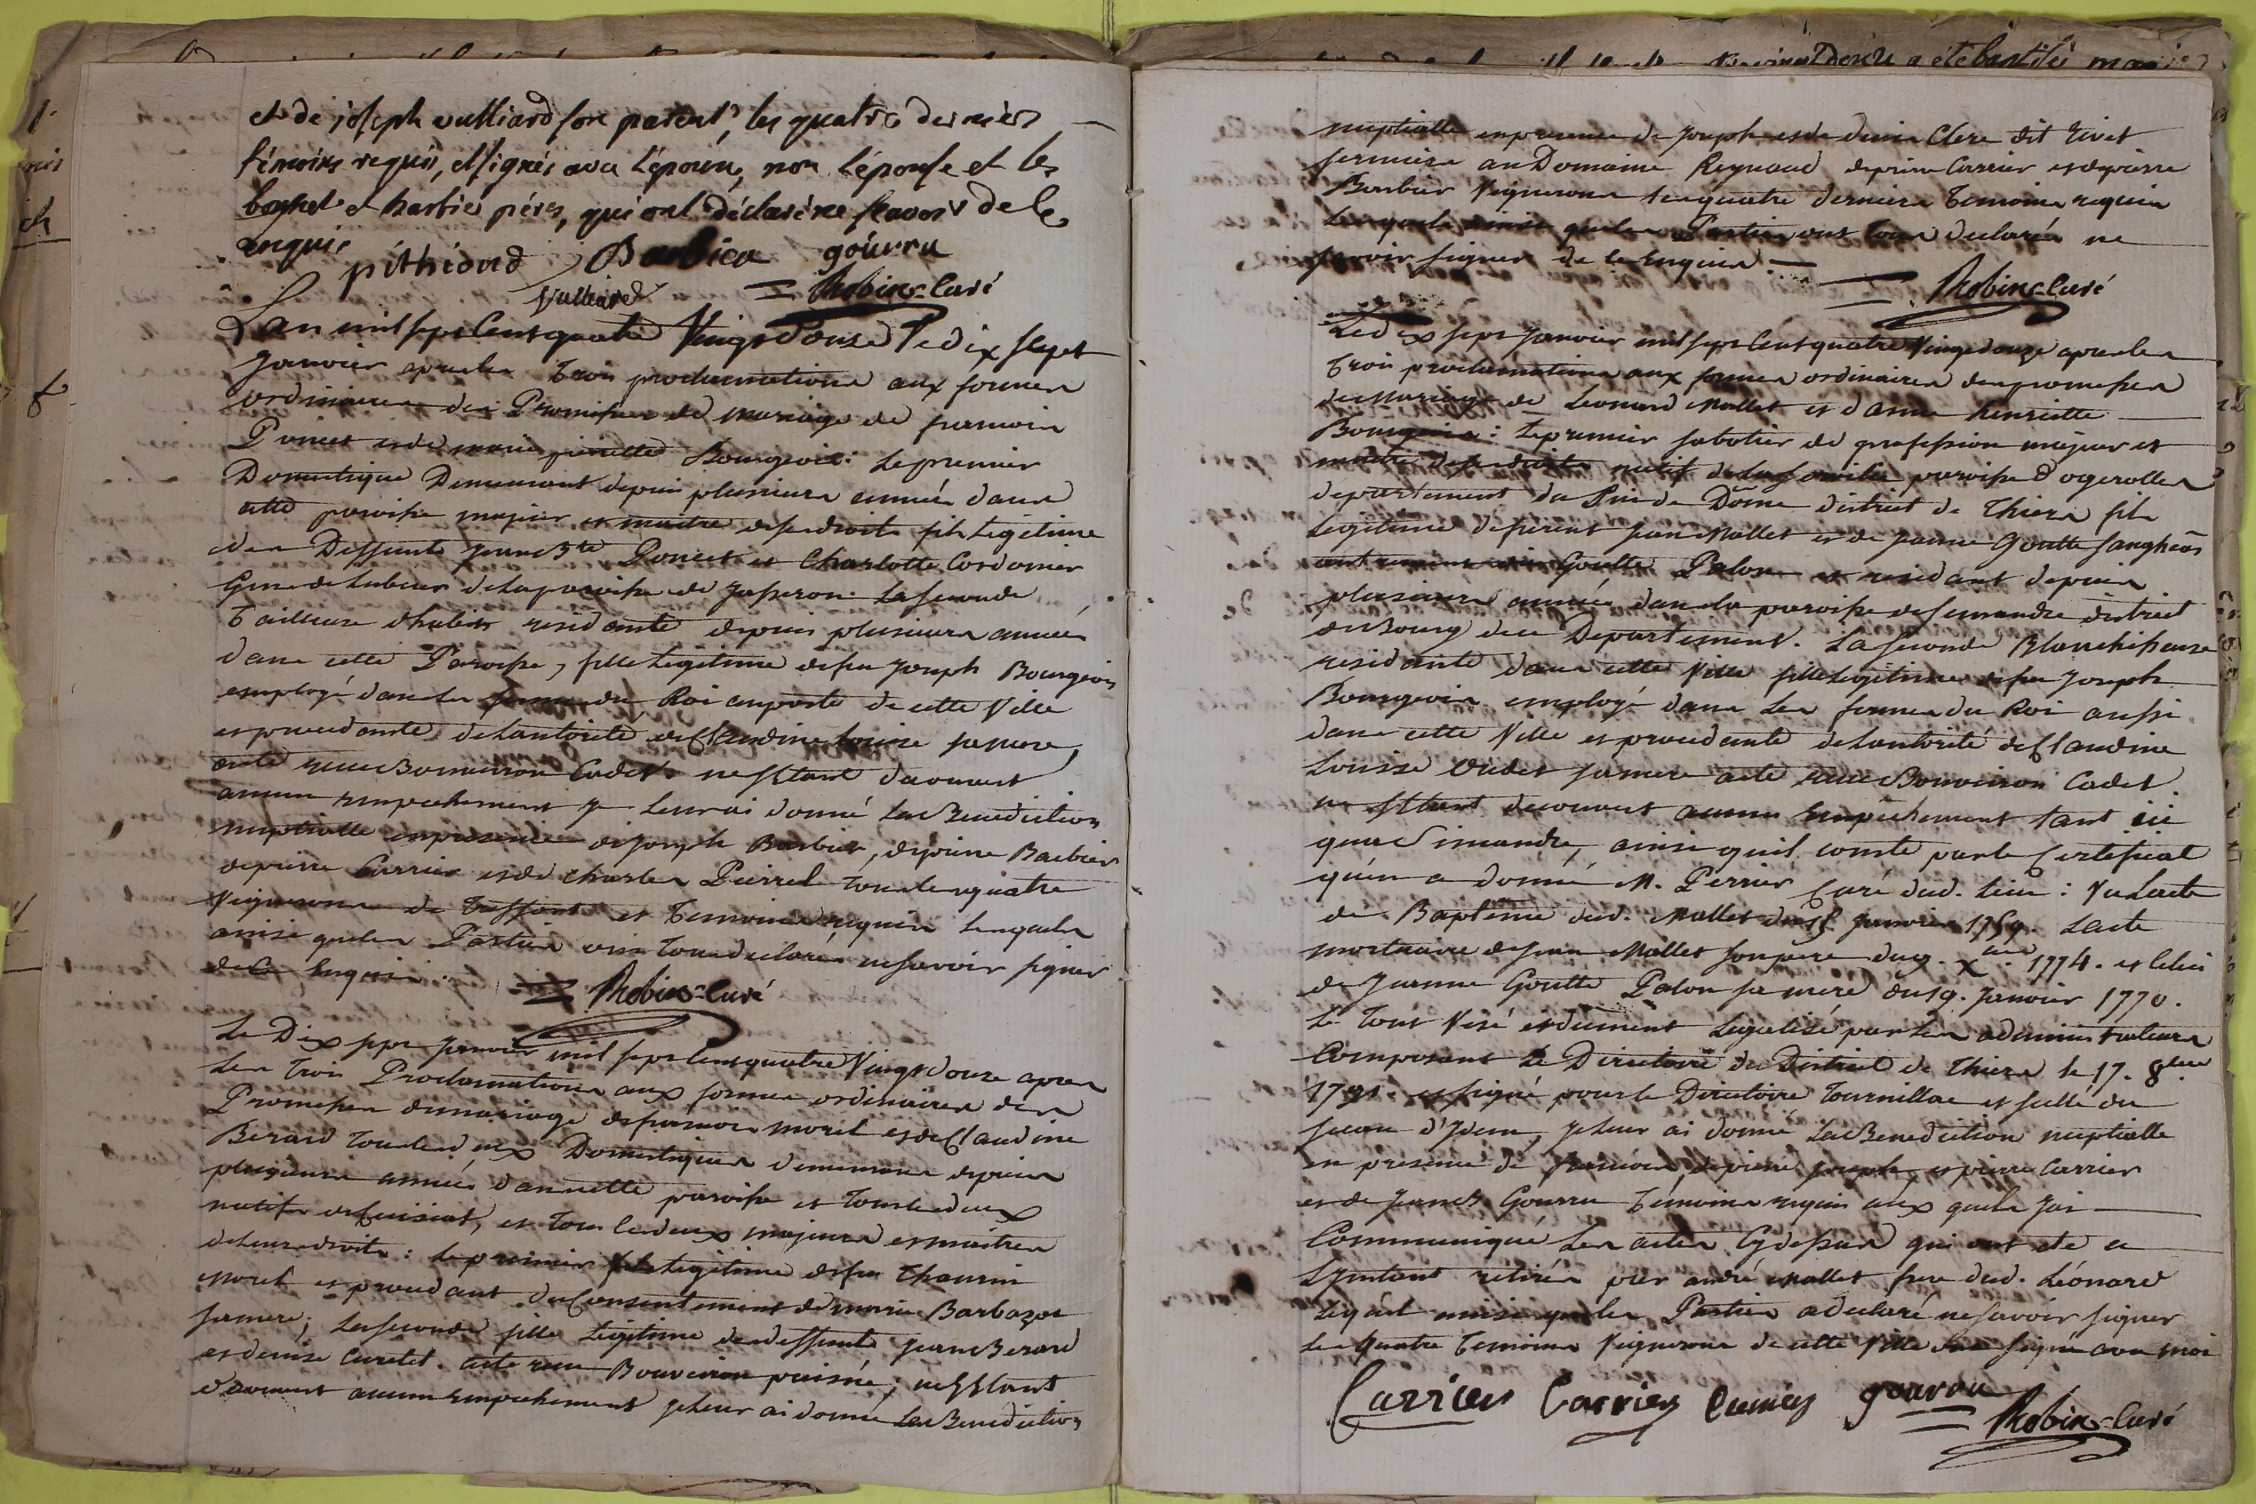 et de joseph vulliard son parent, les quatre derniers
témoins requis, et signés avec l'époux, non l'épouse et les
et barbier péres, qui ont déclaré ne scavoir de ce
enquis
pithioud Barbier gourru
Vulliard Robin Curé
L'an mil sept Cent quatre Vingt douze le dix sept
Janvier apres les trois proclamations aux formes
ordinaires des Promesses de mariage de francois
Poncet et de marie pierrette Bourgeois: le premier
Domestique Demeurant depuis plusieurs années dans
cette paroisse majeur et maitre de ses droits fils legitime
des Deffunts Jean Bte Poncet et Charlotte Cordonier
Gens de Labeur de la paroisse de Jasseron. La seconde
Tailleuse d'habits residante depuis plusieurs années
dans cette Paroisse, fille legitime de feu Joseph Bourgeois
employé dans les fermes du Roi au poste de cette Ville
et procedante de l'autorité de Claudine Louise sa mere,
acte recu Bouveiron Cadet. ne s'étant decouvert
aucun empechement je leur ai donné la Benediction
nuptialle en presence de Joseph Barbier, de pierre Barbier
de pierre Carrier et de Charles Pierrel tous les quatre
Vignerons de Treffort et Temoins requis lesquels
ainsi que les Parties ont tous declarés ne savoir signer
de ce Enquis.
Robin Curé
Le Dix sept Janvier mil sept Cent quatre Vingt douze apres
les trois Proclamations aux formes ordinaires des
Promesses de mariage de francois morel et de Claudine
Berard tous les deux Domestiques demeurans depuis
plusieurs années dans cette paroisse et tous les deux
natifs de Cuisiat, et tous les deux majeurs et maitres
de leurs droits: le premier fils legitime de feu Thaurin
morel et procedant du Consentement de marie Barbazot
sa mere; la seconde fille legitime des deffunts Jean Berard
et denise Curtet. acte recu Bouveiron puisné; ne s'étant
decouvert aucun empechement je leur ai donné la Benediction
nuptialle en presence de Joseph et de denis Clerc dit tivet
fermiers au Domaine Reynaud de pierre Carrier et de pierre
Barbier Vignerons les quatre derniers Temoins requis
lesquels ainsi que les Parties ont tous declarés ne
savoir signer de ce Enquis.
Robin Curé
Le dix sept Janvier mil sept Cent quatre Vingt douze apres les
trois proclamations aux formes ordinaires des promesses
de Mariage de Leonard Mallet et d'anne henriette
Bourgeois: le premier sabotier de profession majeur et
maitre de ses droits natif de la paroisse d'ogerolles
departement du Puis de Dome district de Thiers fils
legitime de Jean Mallet et de Jeanne Goutte
autrement Goutte Palon et residant depuis
plusieurs années dans la paroisse de Simandre district
de Bourg dud. Departement. La seconde Blanchisseuse
residante dans cette Ville fille legitime de feu Joseph
Bourgeois employé dans les fermes du Roi aussi
dans cette Ville et procedante de l'autorité de Claudine
Louise Oudet sa mere acte recu Bouveiron Cadet.
ne s'étant decouvert aucun empêchement tant ici
qu'a Simandre, ainsi qu'il conste par le Certificat
qu'en a donné M. Perrier Curé dud. lieu: Vu L'acte
de Baptême dud. Mallet du Janvier 1759. L'acte
mortuaire de Jean Mallet son pere du 9. Xbre 1774. et Celui
de Jeanne Goutte Palon sa mere du 19. Janvier 1770.
le tout Visé et duement Legalisé par les administrateurs
Composant le Directoire du District de Thiers le 17. 8bre
1791. et signé pour le Directoire Tournillac et scellé du
sceau d'Idem, je leur ai donné la Benediction nuptialle
en presence de francois, de pierre Joseph, et pierre Carrier
et de Jean B. Gourru Temoins requis aux quels j'ai
Communiqué les actes Cy dessus qui ont été a
L'instant retirés par andré Mallet frere dud. Léonard
Lequel ainsi que les Parties a declaré ne savoir signer
les quatre Temoins Vignerons de cette Ville ont signé avec moi
Carrier Carrier gourru
Robin Curé